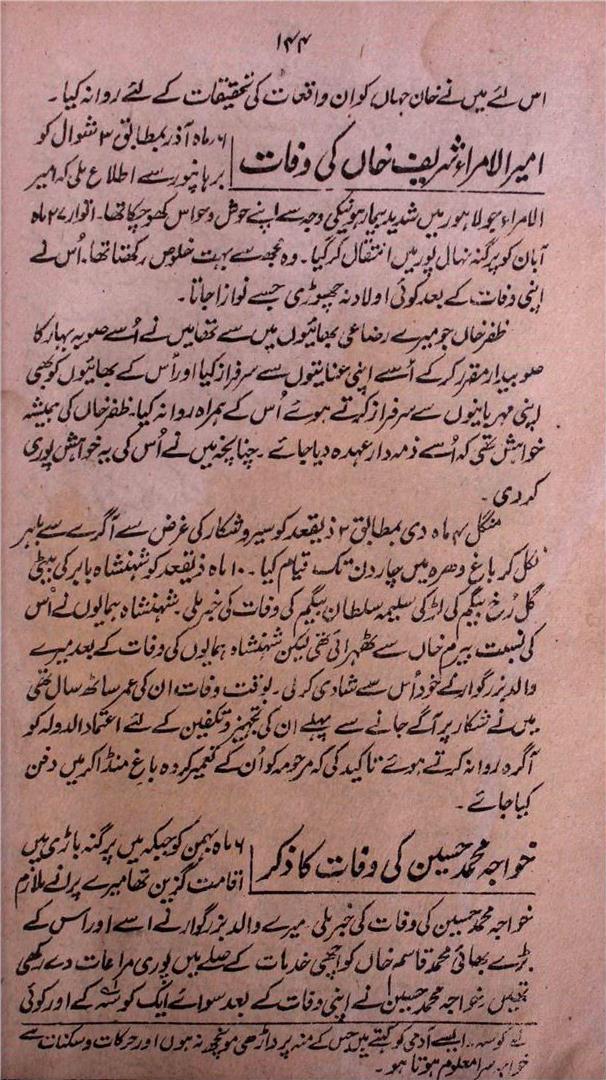 ۱۴۴
اس لئے میں نے خان جہاں کو ان واقعات کی تحقیقات کے لئے روانہ کیا۔
امیر الامراء شریف خاں کی وفات
۶ ماہ آذر بمطابق ۳ شوال کو
برہانپور سے اطلاع ملی کہ امیر
الامراء جو لاہور میں شدید بیمار ہونیکی وجہ سے اپنے ہوش و حواس کھو چکا تھا۔ اتوار ۲۷ ماہ
آبان کو پرگنہ نہال پور میں انتقال کر گیا۔ وہ مجھ سے بہت خلوص رکھتا تھا۔ اُس نے
اپنی وفات کے بعد کوئی اولاد نہ چھوڑی جسے نوازا جاتا۔
ظفر خاں جو میرے رضاعی بھائیوں میں سے تھا میں نے اُسے صوبہ بہار کا
صوبیدار مقرر کر کے اُسے اپنی عنایتوں سے سرفراز کیا اور اُس کے بھائیوں کو بھی
اپنی مہربانیوں سے سرفراز کرتے ہوئے اُس کے ہمراہ روانہ کیا۔ ظفر خاں کی ہمیشہ
خواہش تھی کہ اُسے ذمہ دار عہدہ دیا جائے۔ چنانچہ میں نے اُس کی یہ خواہش پوری
کر دی۔
منگل ۴ ماہ دی بمطابق ۲ ذیقعد کو سیر و شکار کی غرض سے آگرے سے باہر
نکل کر باغ دھرہ میں چار دن تک قیام کیا۔ ۱۰ ماہ ذیقعد کو شہنشاہ بابر کی بیٹی
گل رخ بیگم کی لڑکی سلیمہ سلطان بیگم کی وفات کی خبر ملی۔ شہنشاہ ہمایوں نے اُس
کی نسبت بیرم خاں سے ٹھہرائی تھی لیکن شہنشاہ ہمایوں کی وفات کے بعد میرے
والد بزرگوار نے خود اُس سے شادی کر لی۔ بوقت وفات ان کی عمر ساٹھ سال تھی
میں نے شکار پر آگے جانے سے پہلے ان کی تجہیز و تکفین کے لئے اعتماد الدولہ کو
آگرہ روانہ کرتے ہوئے تاکید کی کہ مرحومہ کو اُن کے تعمیر کردہ باغ منڈاکر میں دفن
کیا جائے۔
خواجہ محمد حسین کی وفات کا ذکر
۶ ماہ بہمن کو جبکہ میں پرگنہ باڑی میں
اقامت گزین تھا میرے پرانے ملازم
خواجہ محمد حسین کی وفات کی خبر ملی۔ میرے والد بزرگوار نے اسے اور اس کے
بڑے بھائی محمد قاسم خاں کو اچھی خدمات کے صلے میں پوری مراعات دے رکھی
تھیں۔ خواجہ محمد حسین نے اپنی وفات کے بعد سوائے ایک کوسہ کے اور کوئی
کوسہ۔ ایسے آدمی کو کہتے ہیں جس کے منہ پر داڑھی مونچھ نہ ہوں اور حرکات و سکنات سے
خواجہ سرا معلوم ہوتا ہو۔